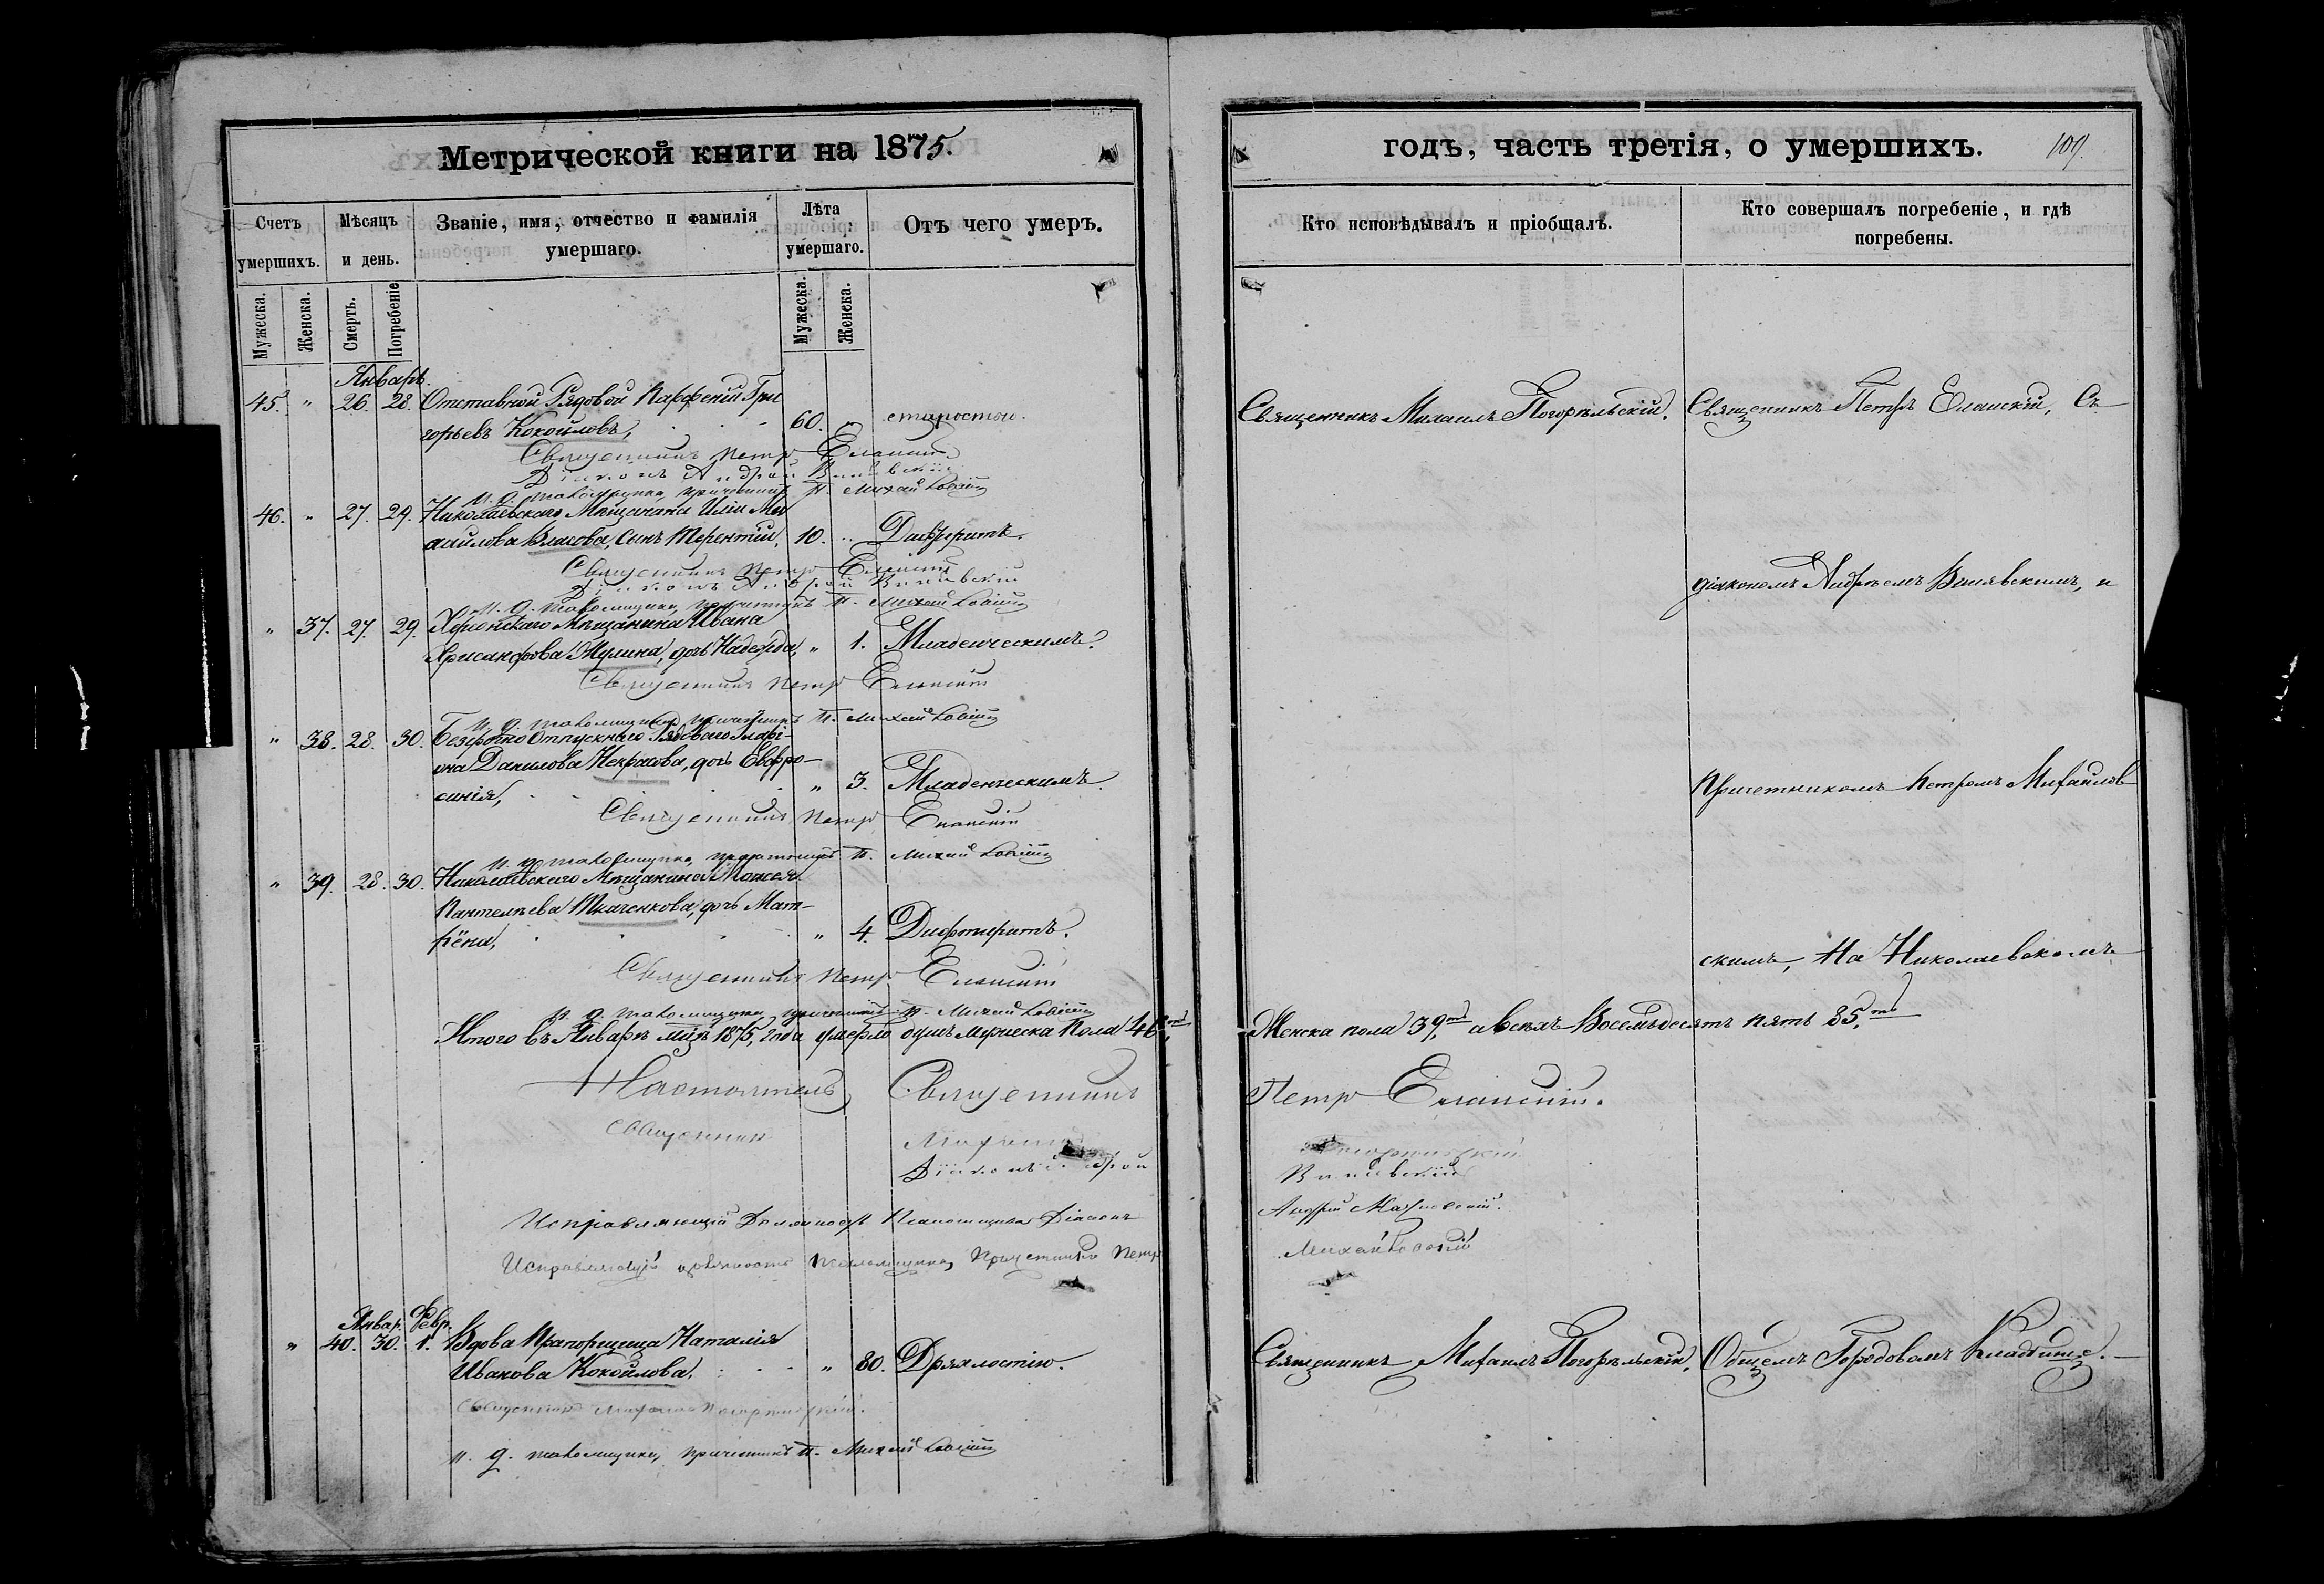 Метрической книги на 1875.
Счетъ умершихъ.
Мѣсяцъ и день.
Званіе, имя, отчество и фамилія умершаго.
Лѣта умершаго.
Отъ чего умеръ.
Мужеска.
Женска.
Смерть.
Погребеніе
Мужеска.
Женска.
Январь.
45. " 26. 28. Отставной Рядовой Парфеній Гри
горьевъ Кокойловъ, 60. " старости.
Священникъ Петръ Еланскій
Діаконъ Андрей
и. д. псаломщика, причетникъ П. Михайловскій
46. " 27. 29. Николаевскаго Мѣщанина Иліи Ми
хайлова Власова, сынъ Терентій, 10. " Дифтеритъ.
Священникъ Петръ Еланскій
Діаконъ Андрей
и. д. псаломщика, причетникъ П. Михайловскій
" 37. 27. 29. Херсонскаго Мѣщанина Ивана
Хрисанфова Жулина, дочь Надежда, " 1. Младенческимъ.
Священникъ Петръ Еланскій
и. д. псаломщика, причетникъ П. Михайловскій
" 38. 28. 30. Безсрочно отпускнаго Рядоваго Илари-
она Данилова Некрасова, дочь Евфро-
синія, " 3. Младенческимъ.
Священникъ Петръ Еланскій
и. д. псаломщика, причетникъ П. Михайловскій
" 39. 28. 30. Николаевскаго Мѣщанина Моисея
Пантелѣева Ткаченкова, дочь Мат-
рёна, " 4. Дифтеритъ.
Священникъ Петръ Еланскій
и. д. псаломщика, причетникъ П. Михайловскій
Итого въ Январѣ мцѣ 1875, года умерло душъ мужеска пола 46,
Настоятель Священникъ
Священникъ Михаилъ
Діаконъ Андрей
Исправляющій Должность Псаломщика Діаконъ
Исправляющій должность Псаломщика, Причетникъ Петръ
Январ. Февр.
" 40. 30. 1. Вдова Прапорщица Наталія
Иванова Кокойлова. " 80. Дряхлостію.
Священникъ Михаилъ Погорѣльскій.
и. д. псаломщика, причетникъ П. Михайловскій
годъ, часть третія, о умершихъ.
109.
Кто исповѣдывалъ и пріобщалъ.
Кто совершалъ погребеніе, и гдѣ погребены.
Священникъ Михаилъ Погорѣльскій. Священникъ Петръ Еланскій, Съ
діакономъ Андреемъ и
Причетникомъ Петромъ Михайлов
скимъ, На Николаевскомъ
Женска пола 39, а всѣхъ Восемьдесятъ пять 85,
Петръ Еланскій.
Погорѣльскій
Андрей
Михайловскій
Священникъ Михаилъ Погорѣльскій, Общемъ Городовомъ Кладбище.